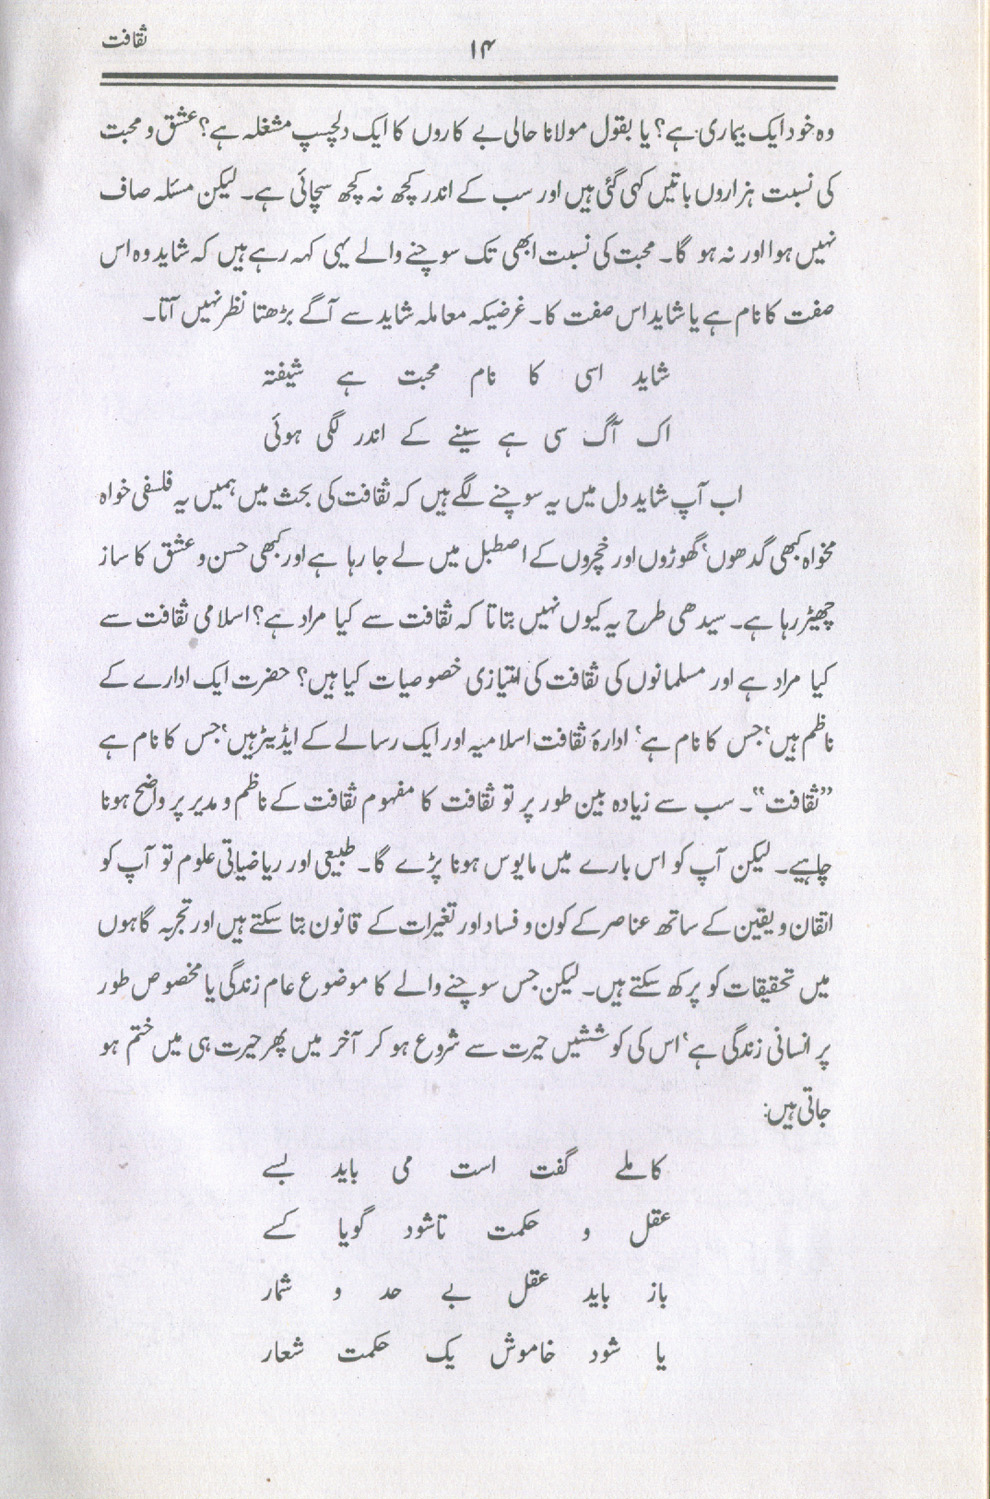 ثقافت
۱۴
وہ خود ایک بیماری ہے؟ یا بقول مولانا حالی بے کاروں کا ایک دلچسپ مشغلہ ہے؟ عشق و محبت
کی نسبت ہزاروں باتیں کہی گئی ہیں اور سب کے اندر کچھ نہ کچھ سچائی ہے۔ لیکن مسئلہ صاف
نہیں ہوا اور نہ ہو گا۔ محبت کی نسبت ابھی تک سوچنے والے یہی کہہ رہے ہیں کہ شاید وہ اس
صفت کا نام ہے یا شاید اس صفت کا۔ غرضیکہ معاملہ شاید سے آگے بڑھتا نظر نہیں آتا۔
شاید اسی کا نام محبت ہے شیفتہ
اک آگ سی ہے سینے کے اندر لگی ہوئی
اب آپ شاید دل میں یہ سوچنے لگے ہیں کہ ثقافت کی بحث میں ہمیں یہ فلسفی خواہ
مخواہ کبھی گدھوں، گھوڑوں اور خچروں کے اصطبل میں لے جا رہا ہے اور کبھی حسن و عشق کا ساز
چھیڑ رہا ہے۔ سیدھی طرح یہ کیوں نہیں بتاتا کہ ثقافت سے کیا مراد ہے؟ اسلامی ثقافت سے
کیا مراد ہے اور مسلمانوں کی ثقافت کی امتیازی خصوصیات کیا ہیں؟ حضرت ایک ادارے کے
ناظم ہیں، جس کا نام ہے، ادارۂ ثقافت اسلامیہ اور ایک رسالے کے ایڈیٹر ہیں، جس کا نام ہے
”ثقافت“۔ سب سے زیادہ بین طور پر تو ثقافت کا مفہوم ثقافت کے ناظم و مدیر پر واضح ہونا
چاہیے۔ لیکن آپ کو اس بارے میں مایوس ہونا پڑے گا۔ طبیعی اور ریاضیاتی علوم تو آپ کو
اتقان و یقین کے ساتھ عناصر کے کون و فساد اور تغیرات کے قانون بتا سکتے ہیں اور تجربہ گاہوں
میں تحقیقات کو پرکھ سکتے ہیں۔ لیکن جس سوچنے والے کا موضوع عام زندگی یا مخصوص طور
پر انسانی زندگی ہے، اس کی کوششیں حیرت سے شروع ہو کر آخر میں پھر حیرت ہی میں ختم ہو
جاتی ہیں:
کاملے گفت است می باید بسے
عقل و حکمت تاشود گویا کسے
باز باید عقل بے حد و شمار
یا شود خاموش یک حکمت شعار